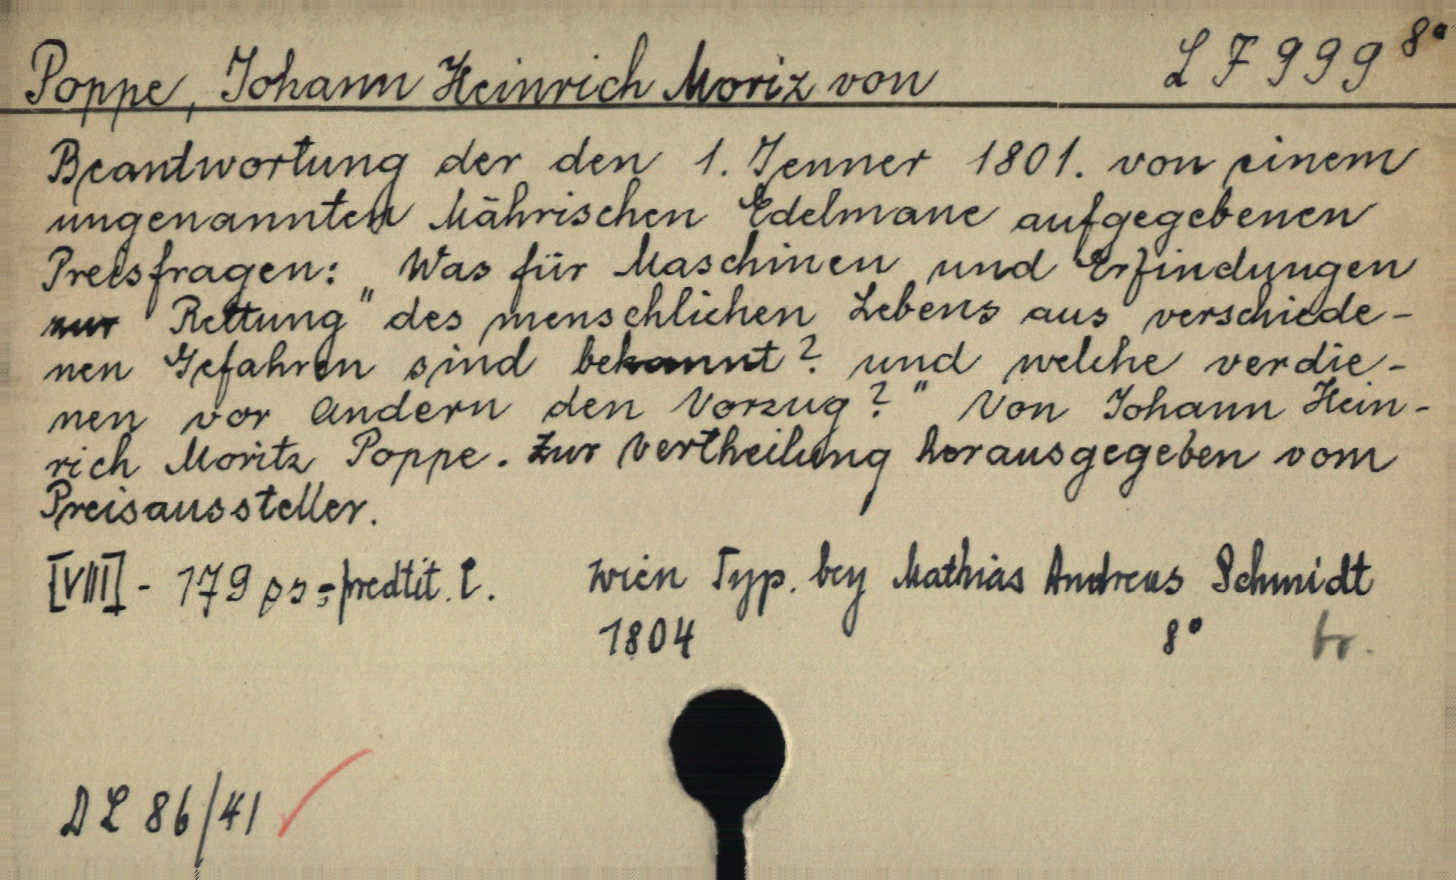 Poppe, Johann Heinrich Moriz von L F 999 8°
Beantwortung der den 1. Jenner 1801. von einem
ungenannten Mährischen Edelmane aufgegebenen
Preisfragen: "Was für Maschinen und Erfindungen
zur Rettung" des menschlichen Lebens aus verschiede-
nen Gefahren sind bekannt? und welche verdie-
nen vor andern den Vorzug?" Von Johann Hein-
rich Moritz Poppe. Zur Vertheilung herausgegeben vom
Preisaussteller.
[VIII] - 179 ps; předtit. l. Wien Typ. bey Mathias Andreas Schmidt
1804 8° br.
DL 86/41